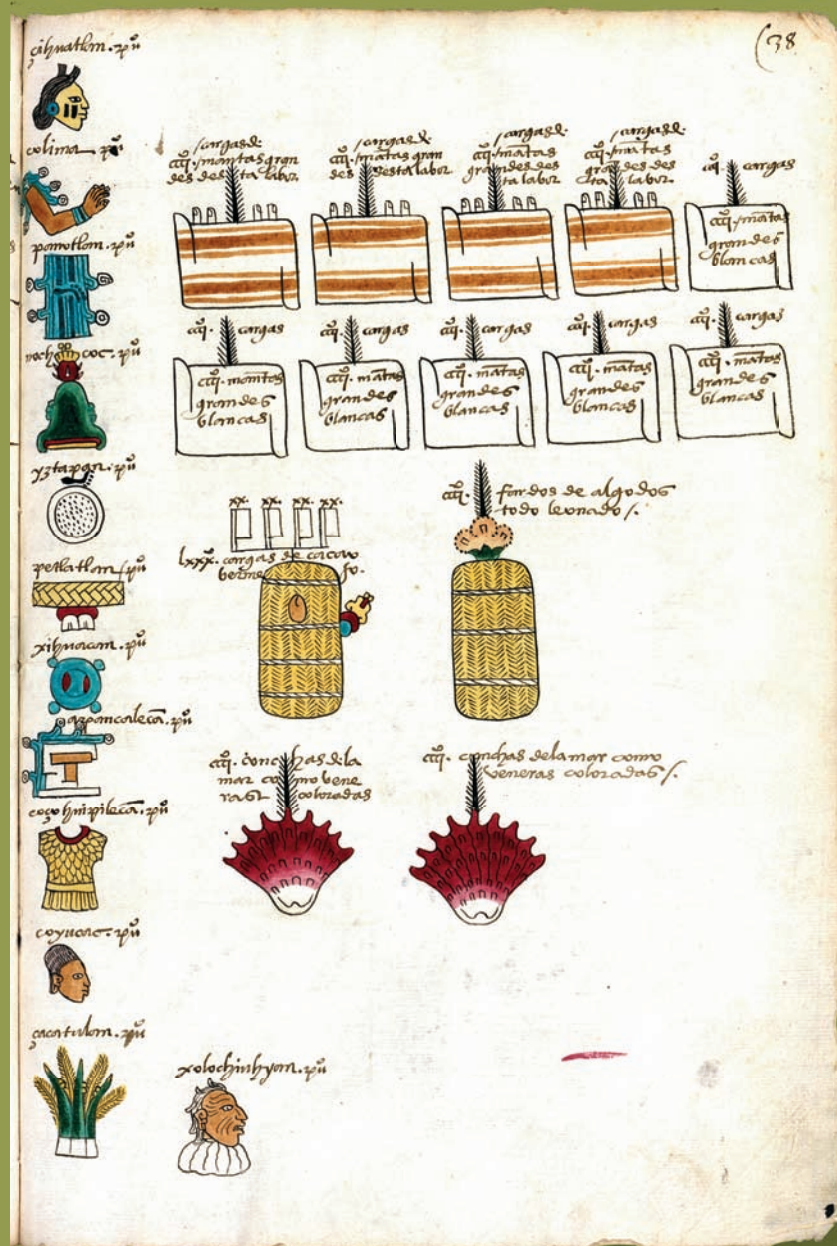 (38
çihuatlan. puº
colima puº
panotlan. puº
noch coc. puº
yztapan. puº
petlatlan / puº
xihuacan. puº
apancalecã. puº
coçohuipilecã. puº
coyucac. puº
çacatulan. puº
xolochiuhyan. puº
/ cargas de
cccc. / mantas gran
des desta labor
/ cargas de
cccc. / mãtas gran
des desta labor
/ cargas de
cccc. / mãtas
grandes des
ta labor
/ cargas de
cccc. / mãtas
grandes des
ta labor
cccc. cargas
cccc. / mãtas
grandes
blancas
cccc. cargas
cccc. mantas
grandes
blancas
cccc. cargas
cccc. mãtas
grandes
blancas
cccc. cargas
cccc. mãtas
grandes
blancas
cccc. cargas
cccc. mãtas
grandes
blancas
cccc. cargas
cccc. mãtas
grandes
blancas
xx. xx. xx. xx.
lxxxº. cargas de cacao
berme jo.
cccc. fardos de algodõ
todo leonado /.
cccc. conchas de la
mar como vene
ras coloradas
cccc. conchas de la mar como
veneras coloradas /.